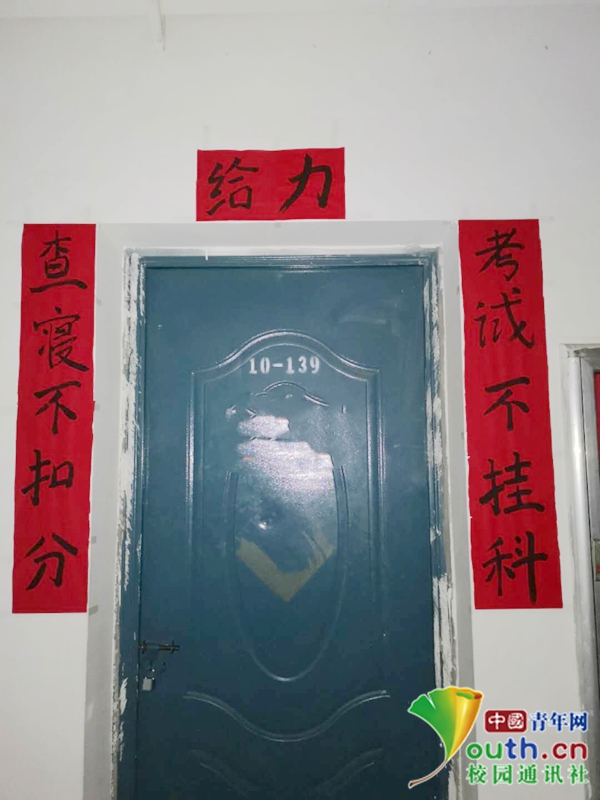 给力
考试不挂科
查寝不扣分
10-139
中國青年网
youth.cn
校园通讯社